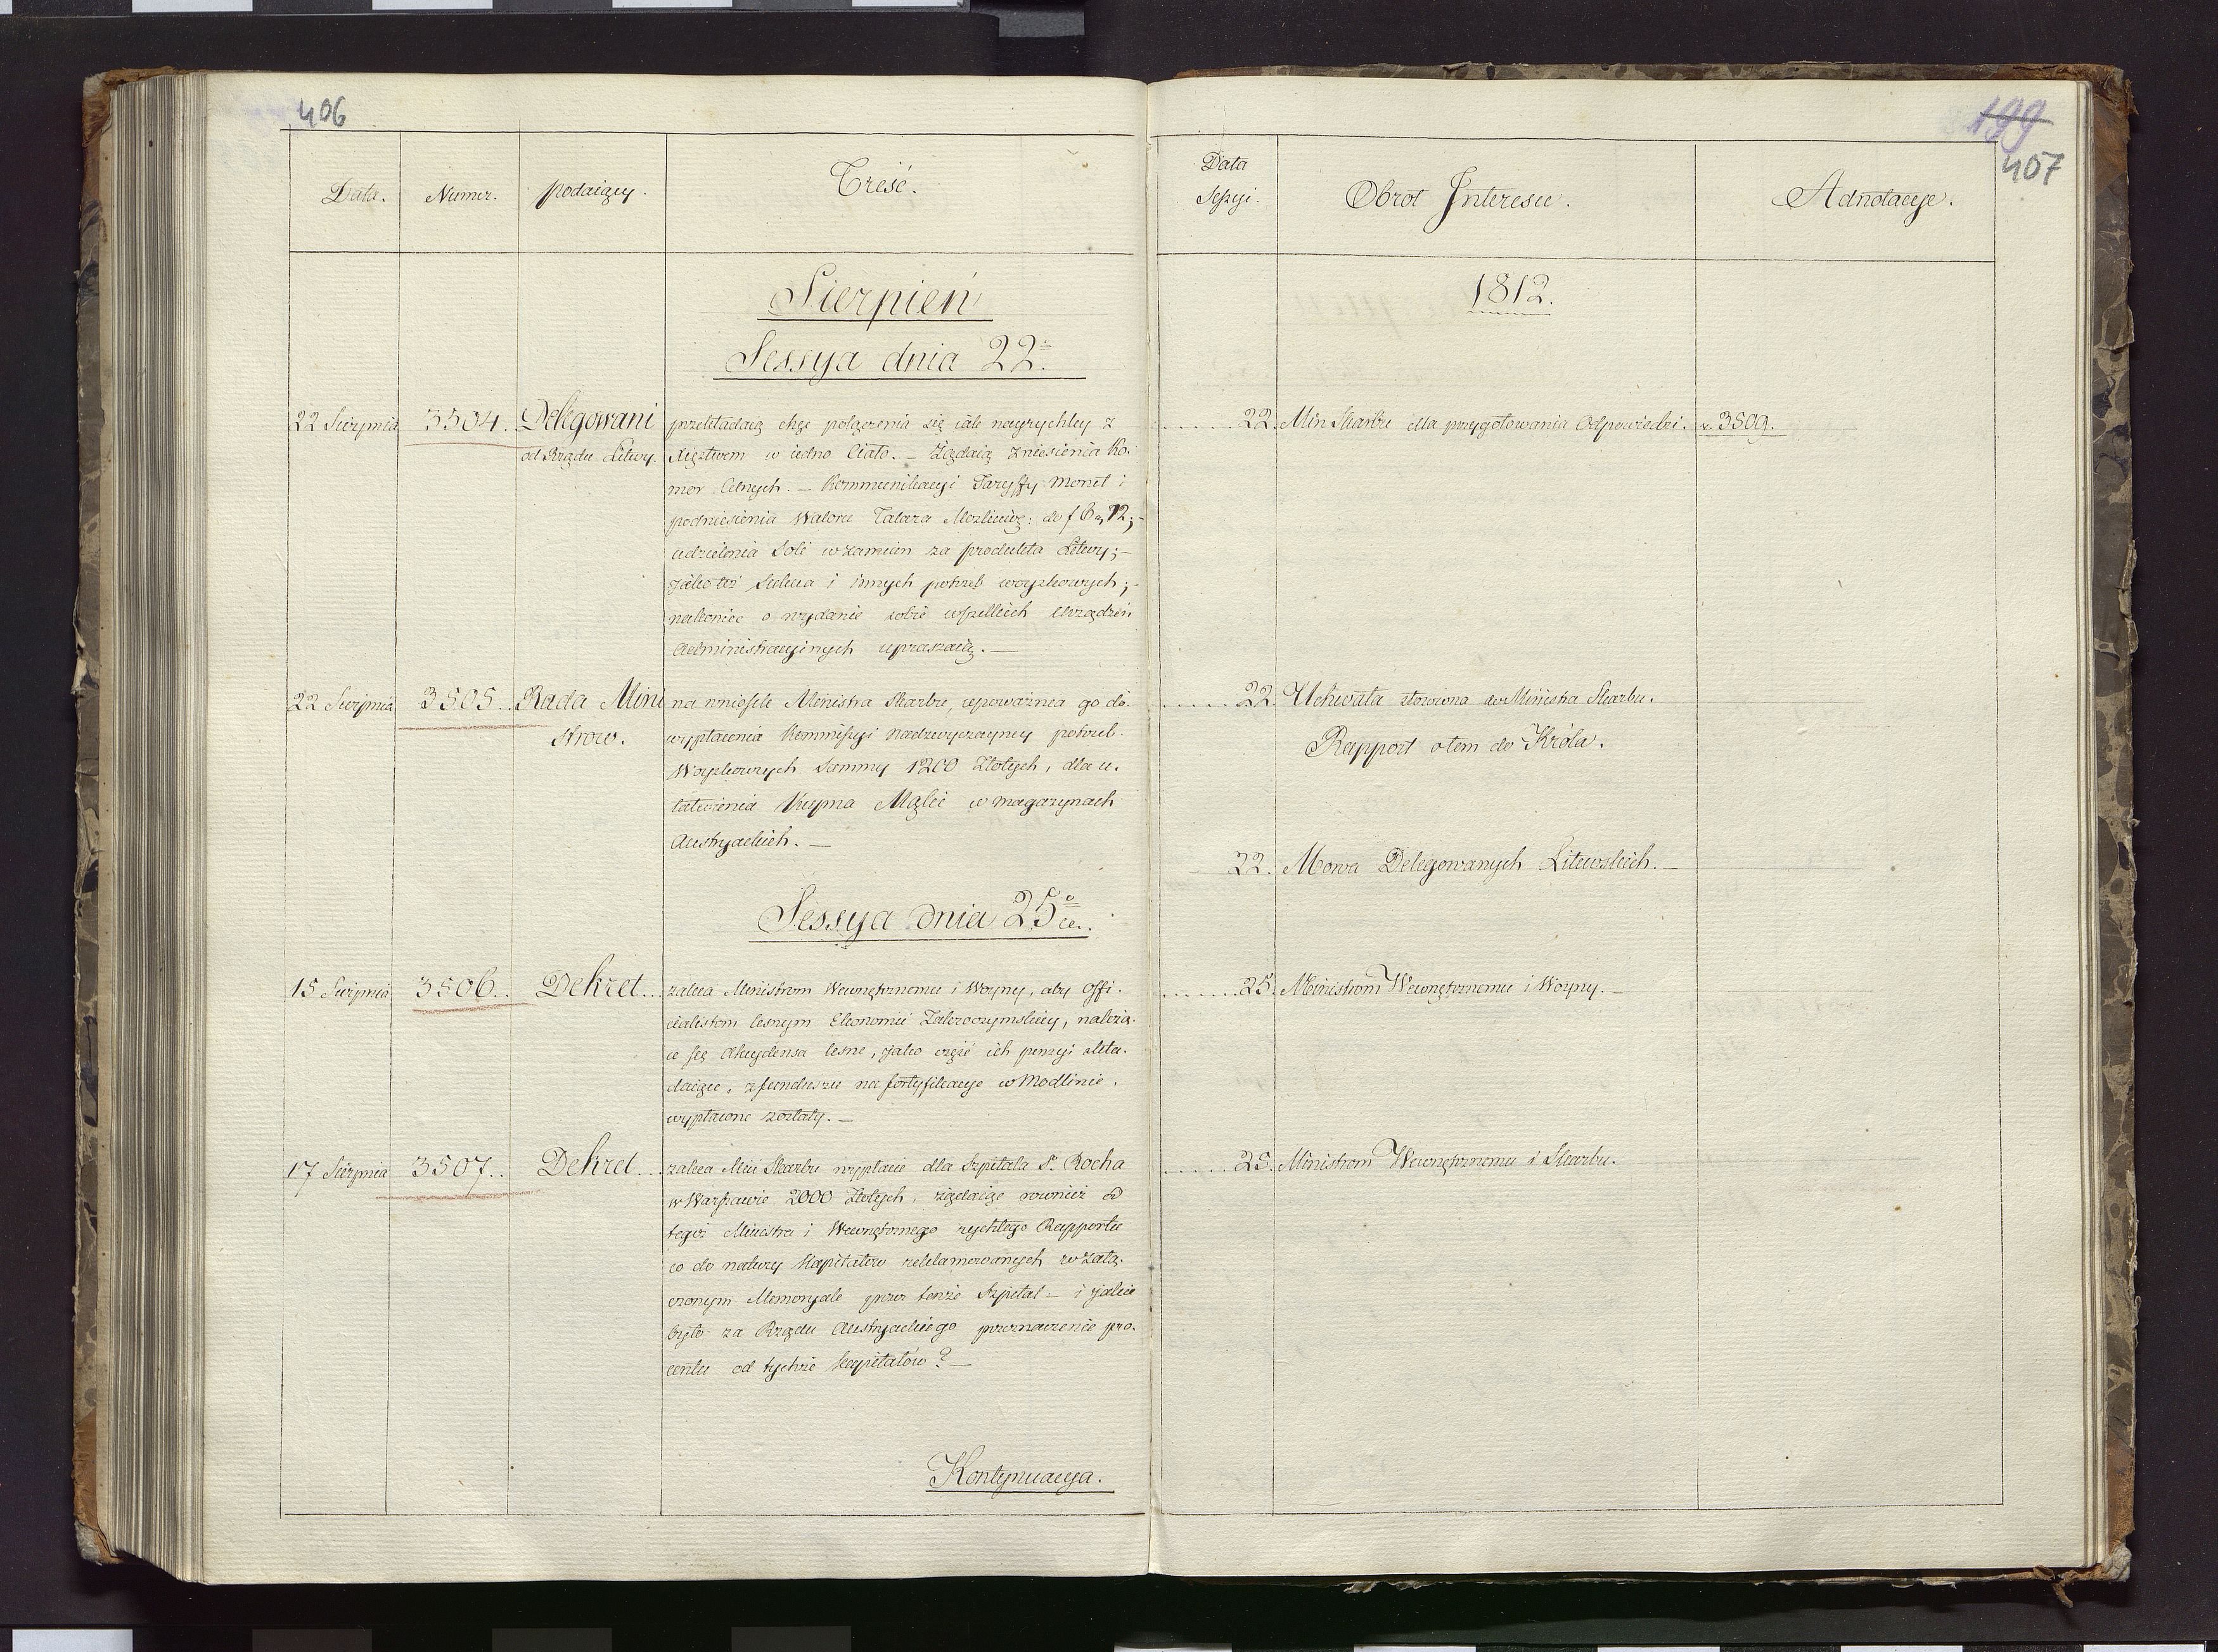 406
Data.
Numer.
podaiący.
Treść.
Sierpień
Sessya dnia 22º.
22 Sierpnia
3504.
Delegowani
od Rządu Litwy.
przekładaią chęć połączenia się iak nayrychley z
Xięztwem w iedno Ciało. – Żądaią zniesienia Ko-
mor Celnych. – Kommunikacyi Taryffy Monet i
podniesienia Waloru Talara do f 6 12;-
udzielenia Soli w zamian za produkta Litwy;-
jako też Sukna i innych potrzeb woyskowych;-
nakoniec o wydanie sobie wszelkich Urządzeń
Administracyjnych upraszaią. —
22 Sierpnia
3505..
Rada Mini
strow.
na wniosek Ministra Skarbu, upoważnia go do
wypłacenia Kommissyi Nadzwyczayney potrzeb
Woyskowych Summy 1200 Złotych, dla u-
łatwienia Kupna Mąki w magazynach
Austryackich. —
Sessya dnia 25º
15 Sierpnia
3506..
Dekret...
zaleca Ministrom Wewnętrznemu i Woyny, aby offi-
cialistom lesnym Ekonomii Zakroczymskiey, należą-
ce się Akcydensa lesne, jako część ich pensyi skła-
daiące, z funduszu na fortyfikacye w Modlinie,
wypłacone zostały. —
17 Sierpnia
3507..
Dekret...
zaleca Mini Skarbu wypłacić dla Szpitala Sº Rocha
w Warszawie 2000 Złotych, żądaiąc rownież od
tegoż Ministra i Wewnętrznego rychłego Rapportu
co do natury Kapitałow reklamowanych w załą-
czonym Memoryale przez tenże Szpital – i jakie
było za Rządu Austryackiego przeznaczenie pro-
centu od tychże kapitałów? —
Kontynuacya.
199
407
Data
Sessyi.
Obrot Interesu.
Adnotacye.
1812.
......22.
Min Skarbu dla przygotowania Odpowiedzi.
v. 3509.
......22.
Uchwała stosowna do Ministra Skarbu.
Rapport o tem do Króla.
22.
Mowa Delegowanych Litewskich. —
.......25.
Ministrom Wewnętrznemu i Woyny. —
......25.
Ministrom Wewnętrznemu i Skarbu.